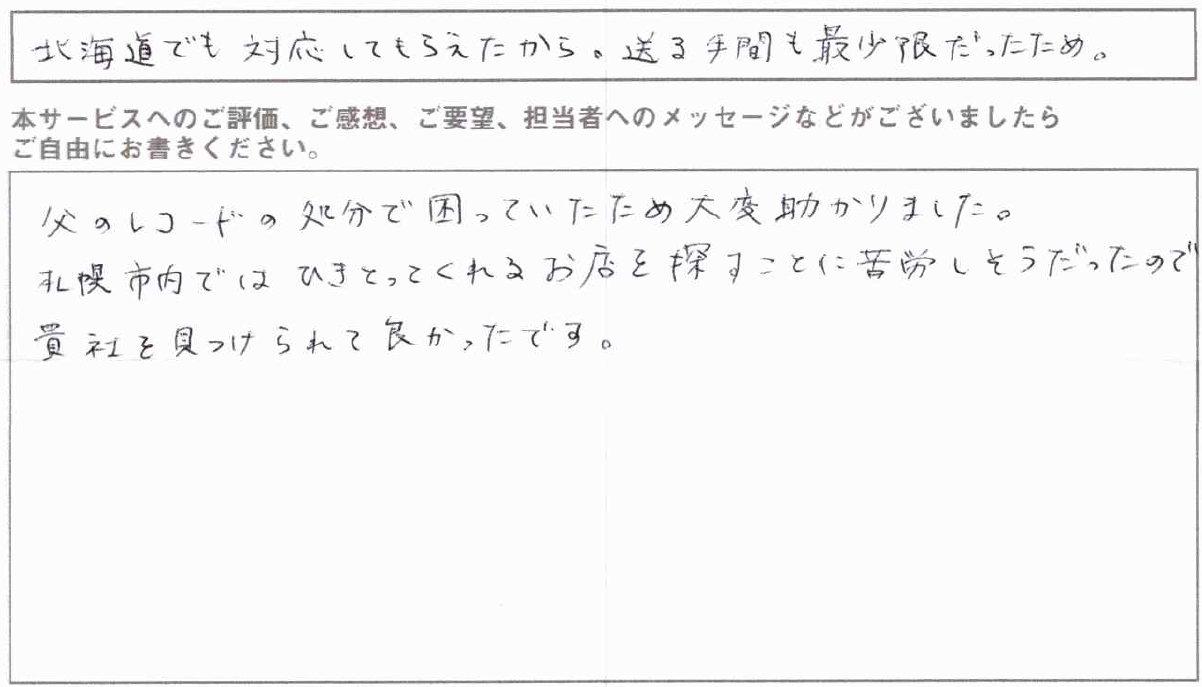 北海道でも対応してもらえたから。送る手間も最少限だったため。
本サービスへのご評価、ご感想、ご要望、担当者へのメッセージなどがございましたら
ご自由にお書きください。
父のレコードの処分で困っていたため大変助かりました。
札幌市内ではひきとってくれるお店を探すことに苦労しそうだったので
貴社を見つけられて良かったです。